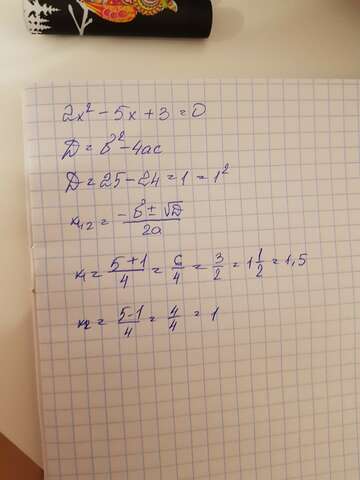 2x² - 5x + 3 = 0
D = b² - 4ac
D = 25 - 24 = 1 = 1²
x₁,₂ = (-b ± √D)/2a
x₁ = (5+1)/4 = 6/4 = 3/2 = 1 1/2 = 1,5
x₂ = (5-1)/4 = 4/4 = 1